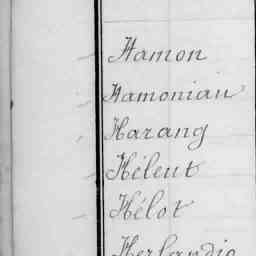 Hamon
Hamoniau
Harang
Héleut
Hélot
Herlandio